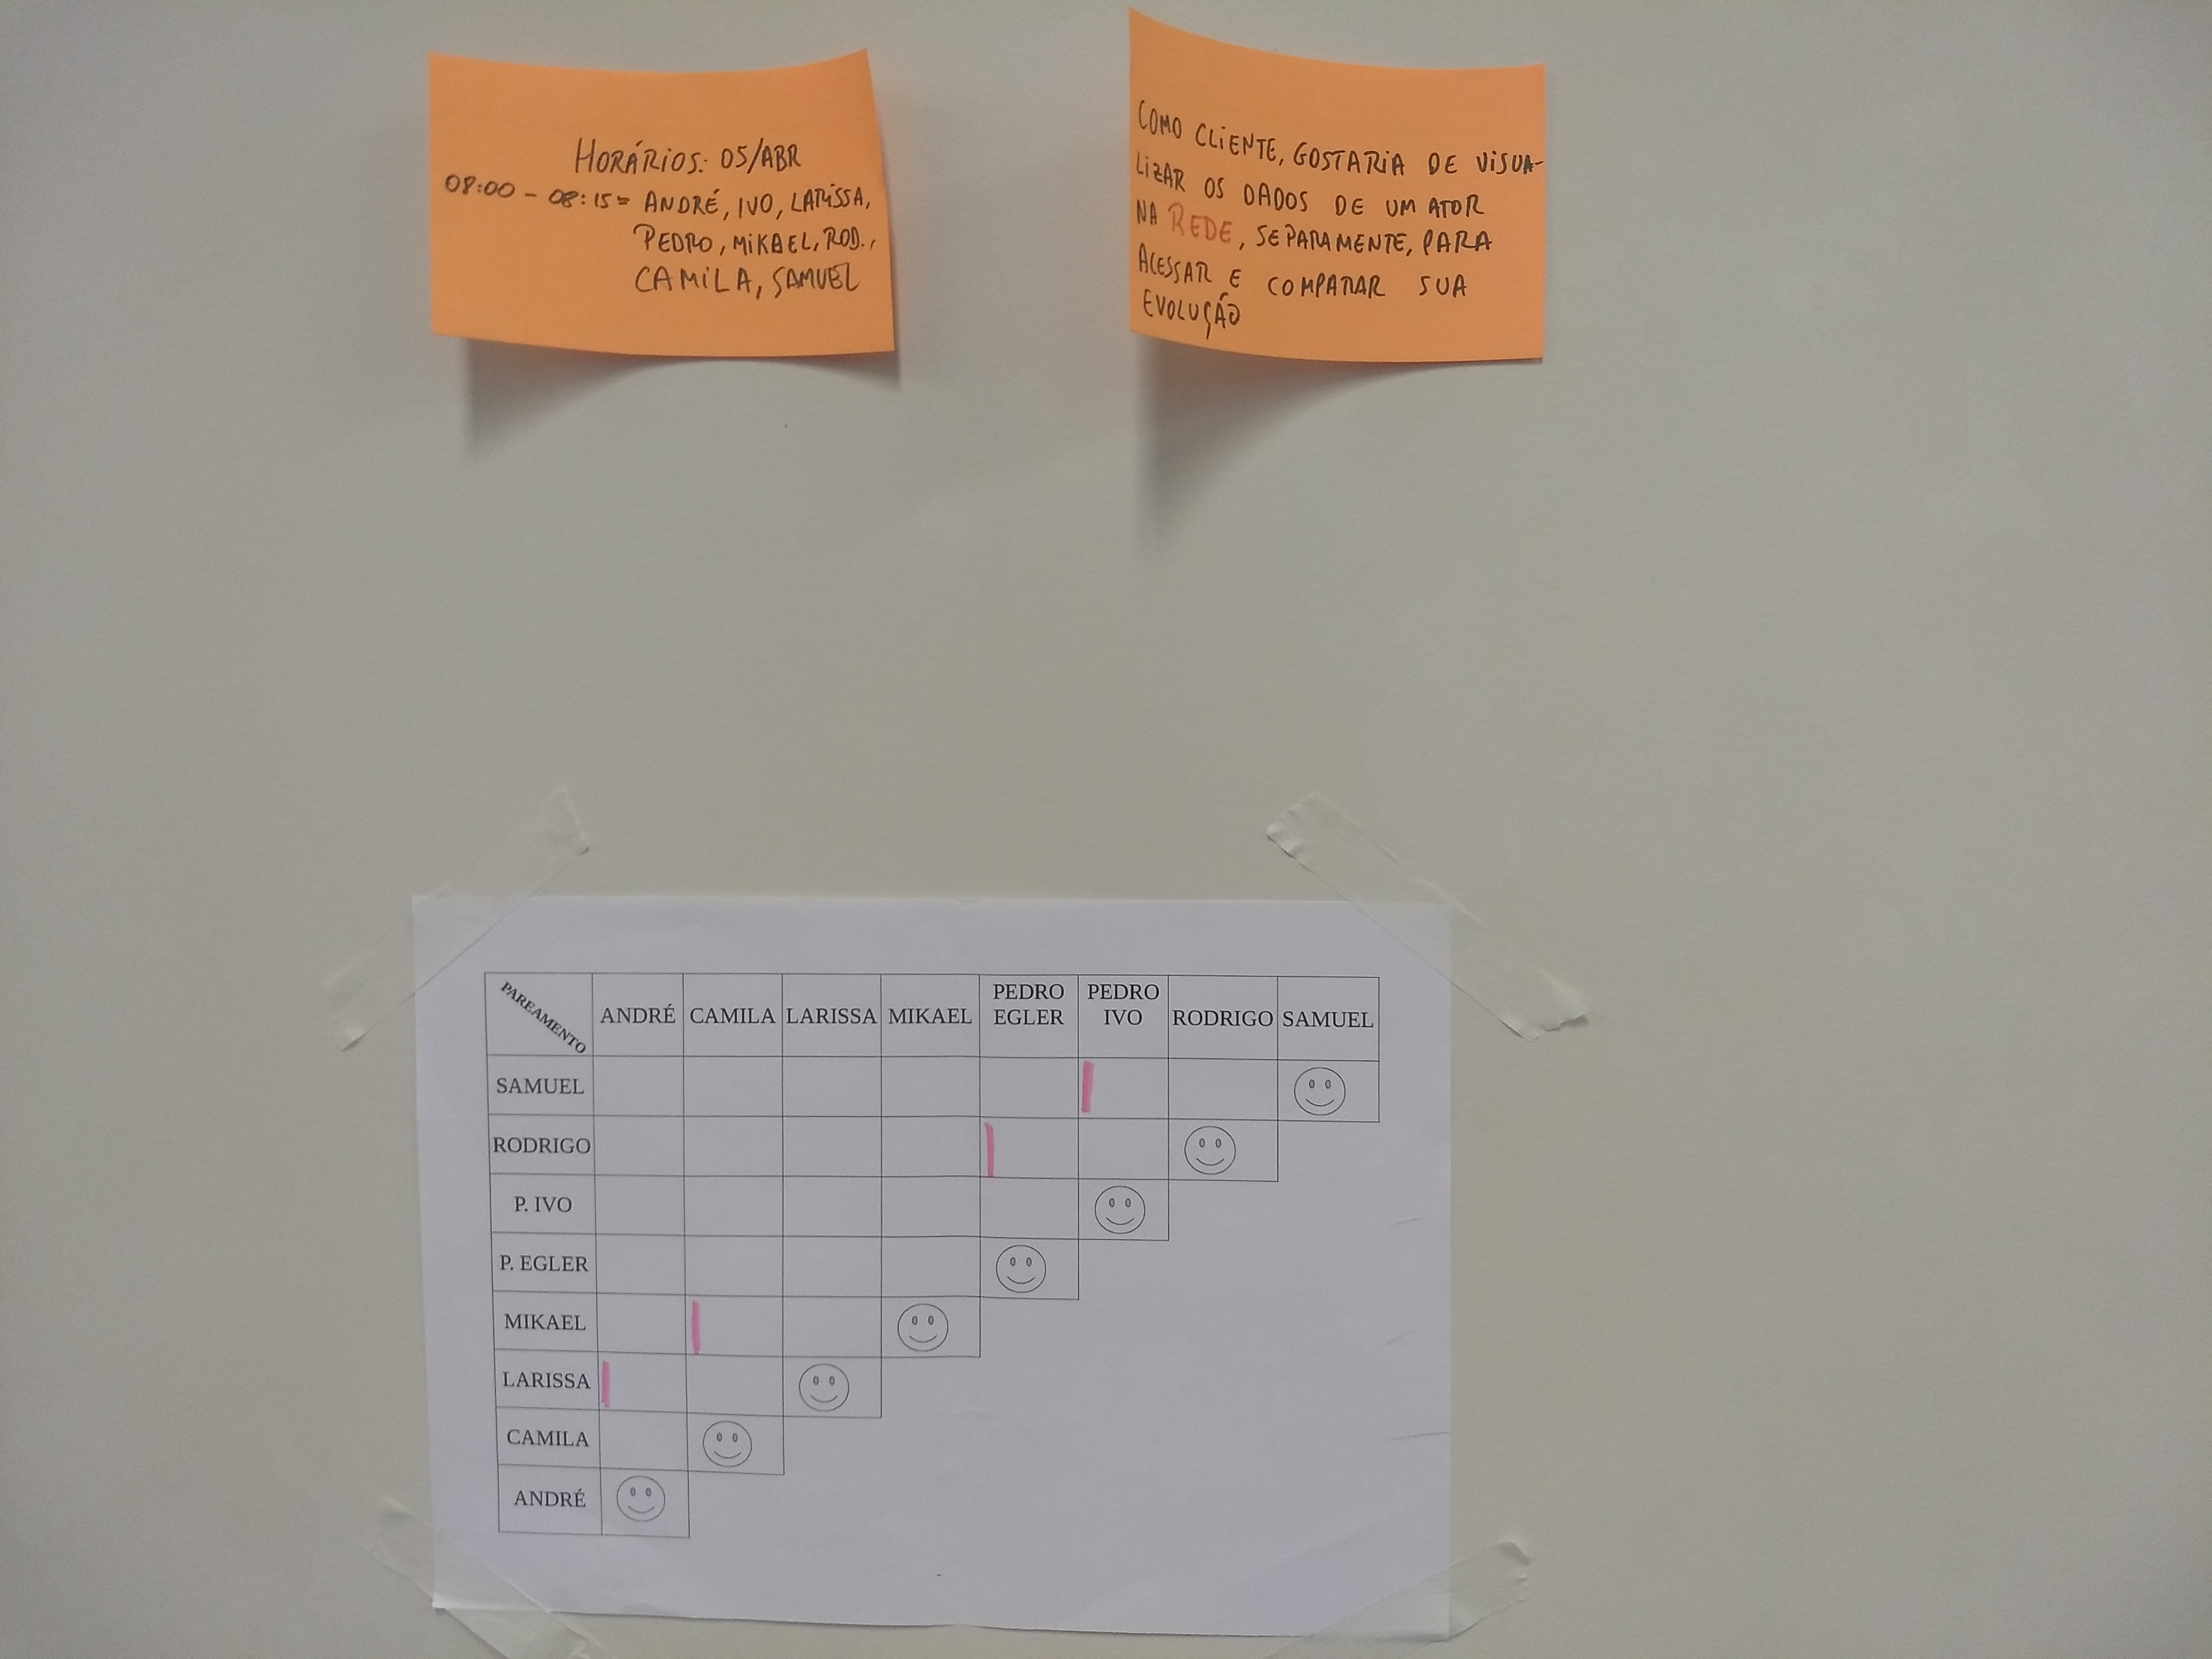 HORÁRIOS: 05/ABR
08:00 - 08:15 = ANDRÉ, IVO, LARISSA,
PEDRO, MIKAEL, ROD.,
CAMILA, SAMUEL
COMO CLIENTE, GOSTARIA DE VISUA-
LIZAR OS DADOS DE UM ATOR
NA REDE, SEPARAMENTE, PARA
ACESSAR E COMPARAR SUA
EVOLUÇÃO
PAREAMENTO ANDRÉ CAMILA LARISSA MIKAEL PEDRO EGLER PEDRO IVO RODRIGO SAMUEL
SAMUEL
RODRIGO
P. IVO
P. EGLER
MIKAEL
LARISSA
CAMILA
ANDRÉ